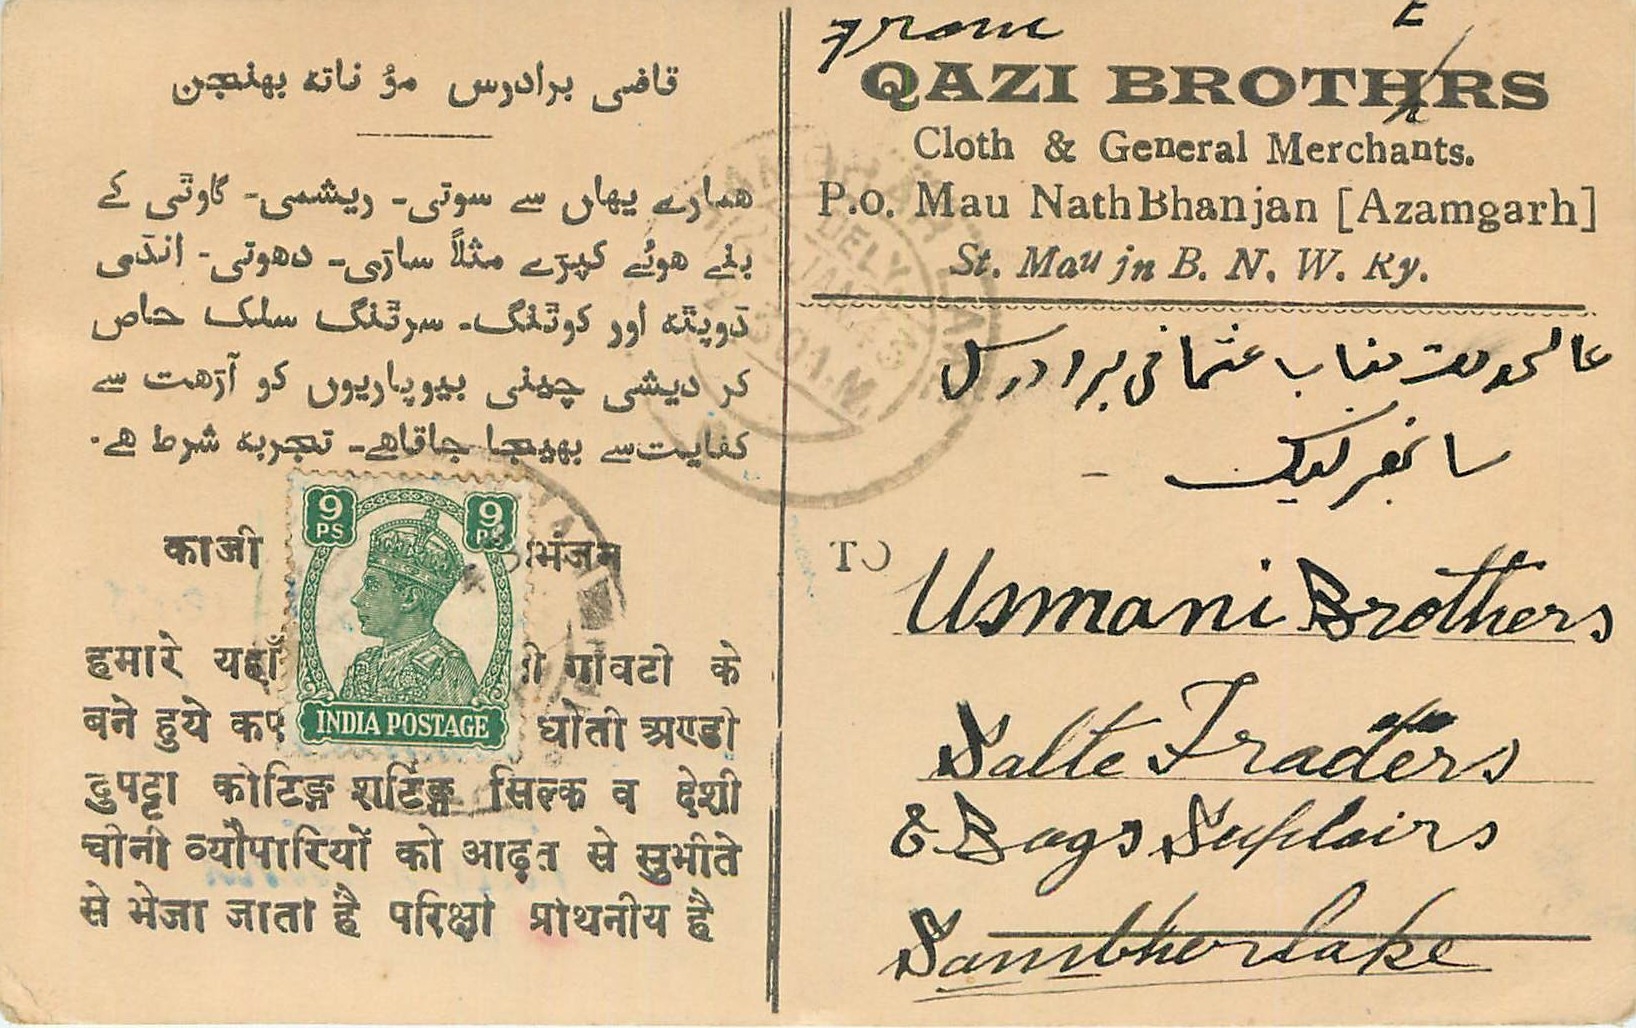 قاضی برادرس مؤ ناتھ بھنجن
ھمارے یھاں سے سوتی۔ ریشمی۔ گاوٹی کے
بنے ھوئے کپڑے مثلاً ساڑی۔ دھوتی۔ انڈی
دوپٹھ اور کوٹنگ۔ سرٹنگ سلک خاص
کر دیشی چینی بیوپاریوں کو آڑھت سے
کفایت سے بھیجا جاتاھے۔ تجربھ شرط ھے۔
काजी भंजन
हमारे यहाँ गावटी के
बने हुये कप धोती अण्डी
दुपट्टा कोटिङ्ग शर्टिङ्ग सिल्क व देशी
चीनी व्यौपारियों को आढ़त से सुभीते
से भेजा जाता है परिक्षा प्राथनीय है
9 PS 9 PS
INDIA POSTAGE
From
QAZI BROTHERS
Cloth & General Merchants.
P.o. Mau NathBhanjan [Azamgarh]
St. Mau jn B. N. W. Ry.
جناب عثمانی برادرس
سانبھر لیک
TO
Usmani Brothers
Salte Traders
& Bags Suplairs
Sambherlake
DELY
A.M.